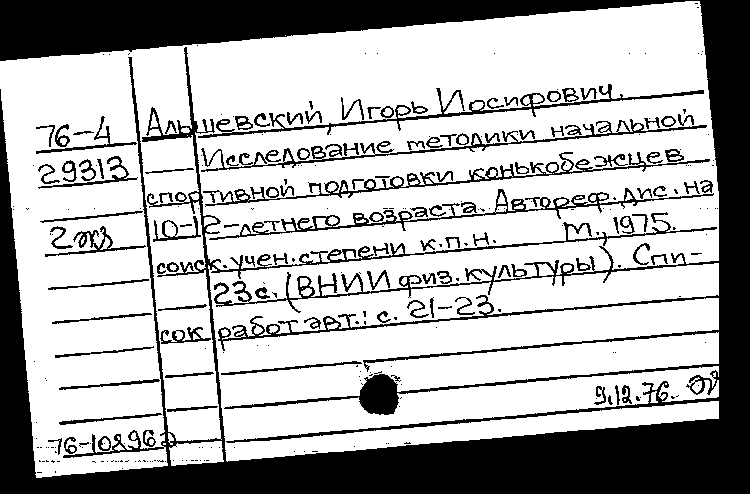 76-4 Альшевский, Игорь Иосифович.
29313 Исследование методики начальной
спортивной подготовки конькобежцев
2 экз 10-12-летнего возраста. Автореф. дис. на
соиск. учен. степени к.п.н. М., 1975.
23 с. (ВНИИ физ. культуры). Спи-
сок работ авт.: с. 21-23.
9.12.76.
76-10896